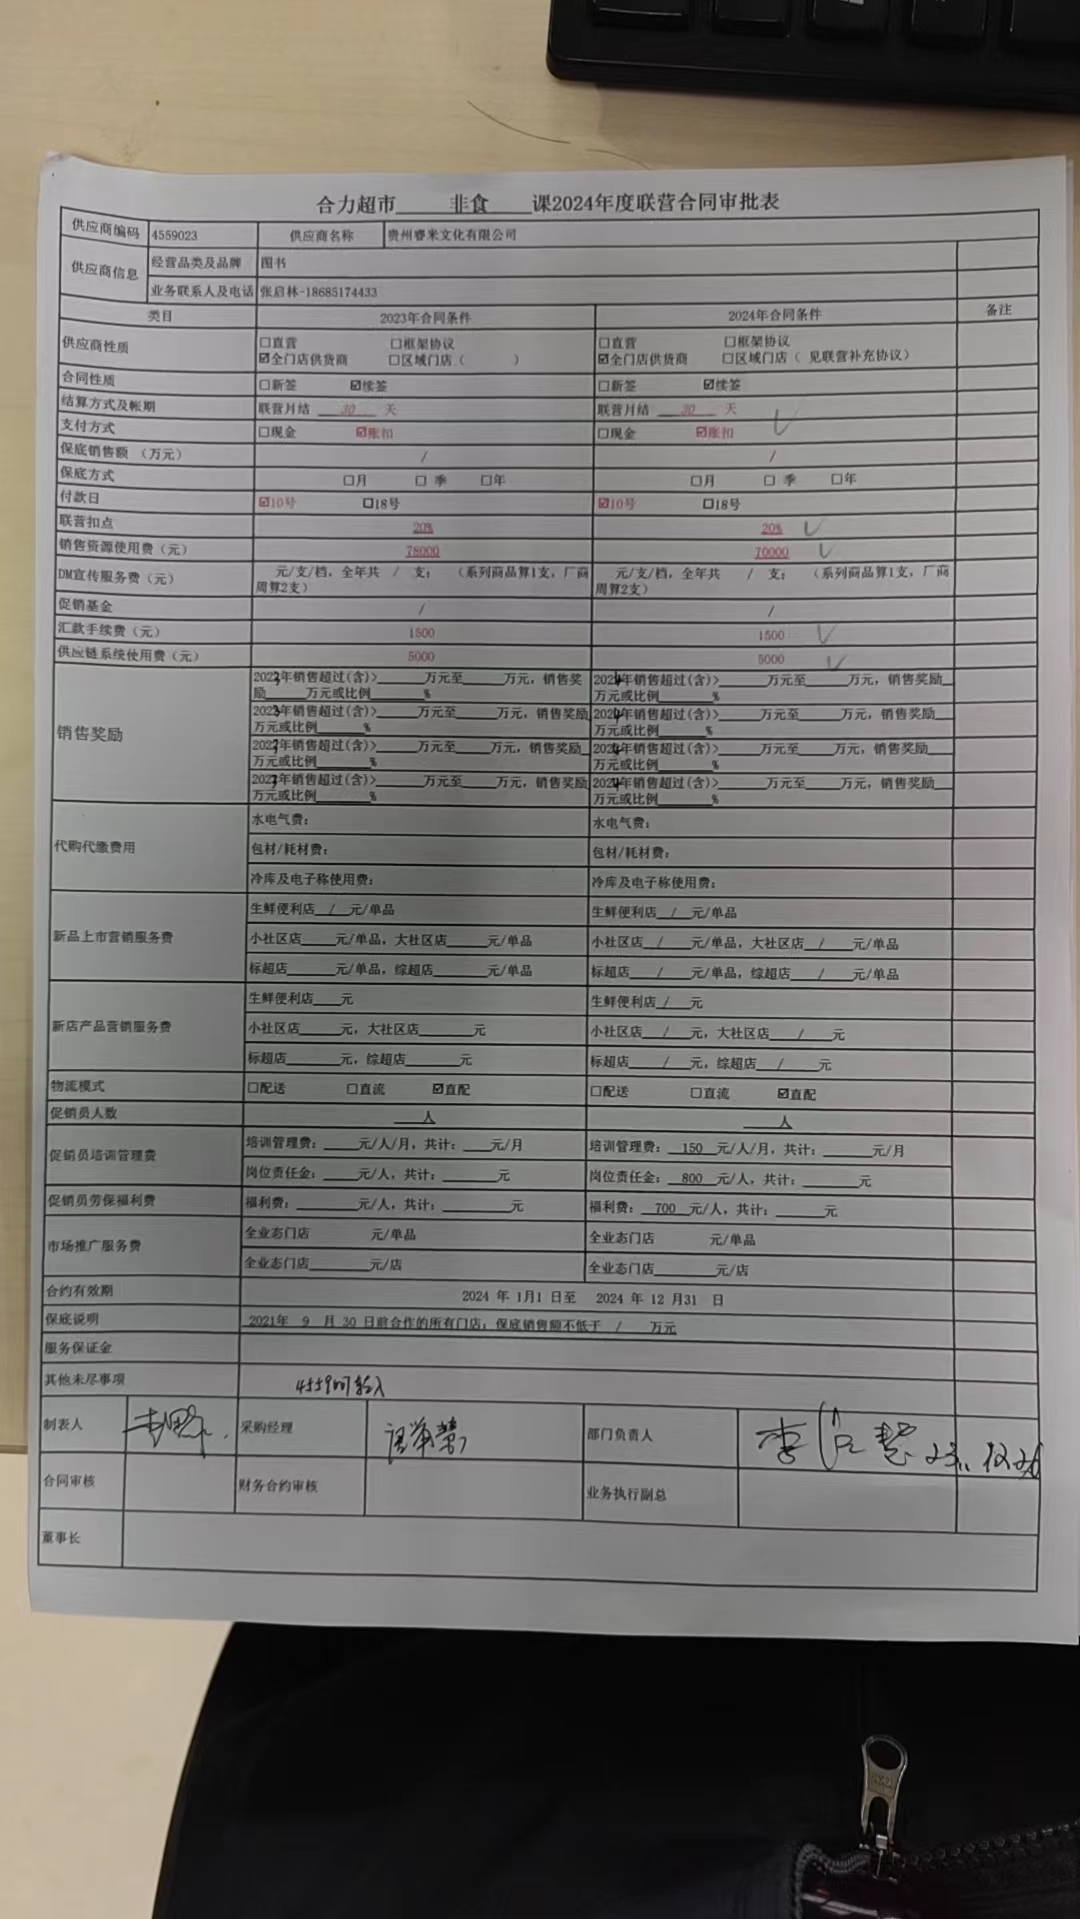 合力超市 非食 课2024年度联营合同审批表
供应商编码 4559023 供应商名称 贵州睿米文化有限公司
供应商信息 经营品类及品牌 图书
业务联系人及电话 张启林-18685174433
类目 2023年合同条件 2024年合同条件 备注
供应商性质 □直营 □框架协议 □直营 □框架协议
☑全门店供货商 □区域门店（ ） ☑全门店供货商 □区域门店（ 见联营补充协议）
合同性质 □新签 ☑续签 □新签 ☑续签
结算方式及帐期 联营月结 30 天 联营月结 30 天
支付方式 □现金 ☑账扣 □现金 ☑账扣
保底销售额 （万元） / /
保底方式 □月 □ 季 □年 □月 □ 季 □年
付款日 ☑10号 □18号 ☑10号 □18号
联营扣点 20% 20%
销售资源使用费（元） 78000 70000
DM宣传服务费（元） 元/支/档，全年共 / 支； （系列商品算1支，厂商周算2支） 元/支/档，全年共 / 支； （系列商品算1支，厂商周算2支）
促销基金 / /
汇款手续费（元） 1500 1500
供应链系统使用费（元） 5000 5000
销售奖励
2023年销售超过(含)>____万元至____万元，销售奖励____万元或比例____% 2024年销售超过(含)>____万元至____万元，销售奖励____万元或比例____%
2023年销售超过(含)>____万元至____万元，销售奖励____万元或比例____% 2024年销售超过(含)>____万元至____万元，销售奖励____万元或比例____%
2023年销售超过(含)>____万元至____万元，销售奖励____万元或比例____% 2024年销售超过(含)>____万元至____万元，销售奖励____万元或比例____%
2023年销售超过(含)>____万元至____万元，销售奖励____万元或比例____% 2024年销售超过(含)>____万元至____万元，销售奖励____万元或比例____%
代购代缴费用 水电气费： 水电气费：
包材/耗材费： 包材/耗材费：
冷库及电子称使用费： 冷库及电子称使用费：
新品上市营销服务费 生鲜便利店 / 元/单品 生鲜便利店 / 元/单品
小社区店____元/单品，大社区店____元/单品 小社区店 / 元/单品，大社区店 / 元/单品
标超店____元/单品，综超店____元/单品 标超店 / 元/单品，综超店 / 元/单品
新店产品营销服务费 生鲜便利店____元 生鲜便利店 / 元
小社区店____元，大社区店____元 小社区店 / 元，大社区店 / 元
标超店____元，综超店____元 标超店 / 元，综超店 / 元
物流模式 □配送 □直流 ☑直配 □配送 □直流 ☑直配
促销员人数 ____人 ____人
促销员培训管理费 培训管理费：____元/人/月，共计：____元/月 培训管理费： 150 元/人/月，共计：____元/月
岗位责任金：____元/人，共计：____元 岗位责任金： 800 元/人，共计：____元
促销员劳保福利费 福利费：____元/人，共计：____元 福利费： 700 元/人，共计：____元
市场推广服务费 全业态门店 元/单品 全业态门店 元/单品
全业态门店____元/店 全业态门店____元/店
合约有效期 2024 年 1月1 日至 2024 年 12 月31 日
保底说明 2021年 9 月 30 日前合作的所有门店；保底销售额不低于 / 万元
服务保证金
其他未尽事项
制表人 采购经理 部门负责人
合同审核 财务合约审核 业务执行副总
董事长